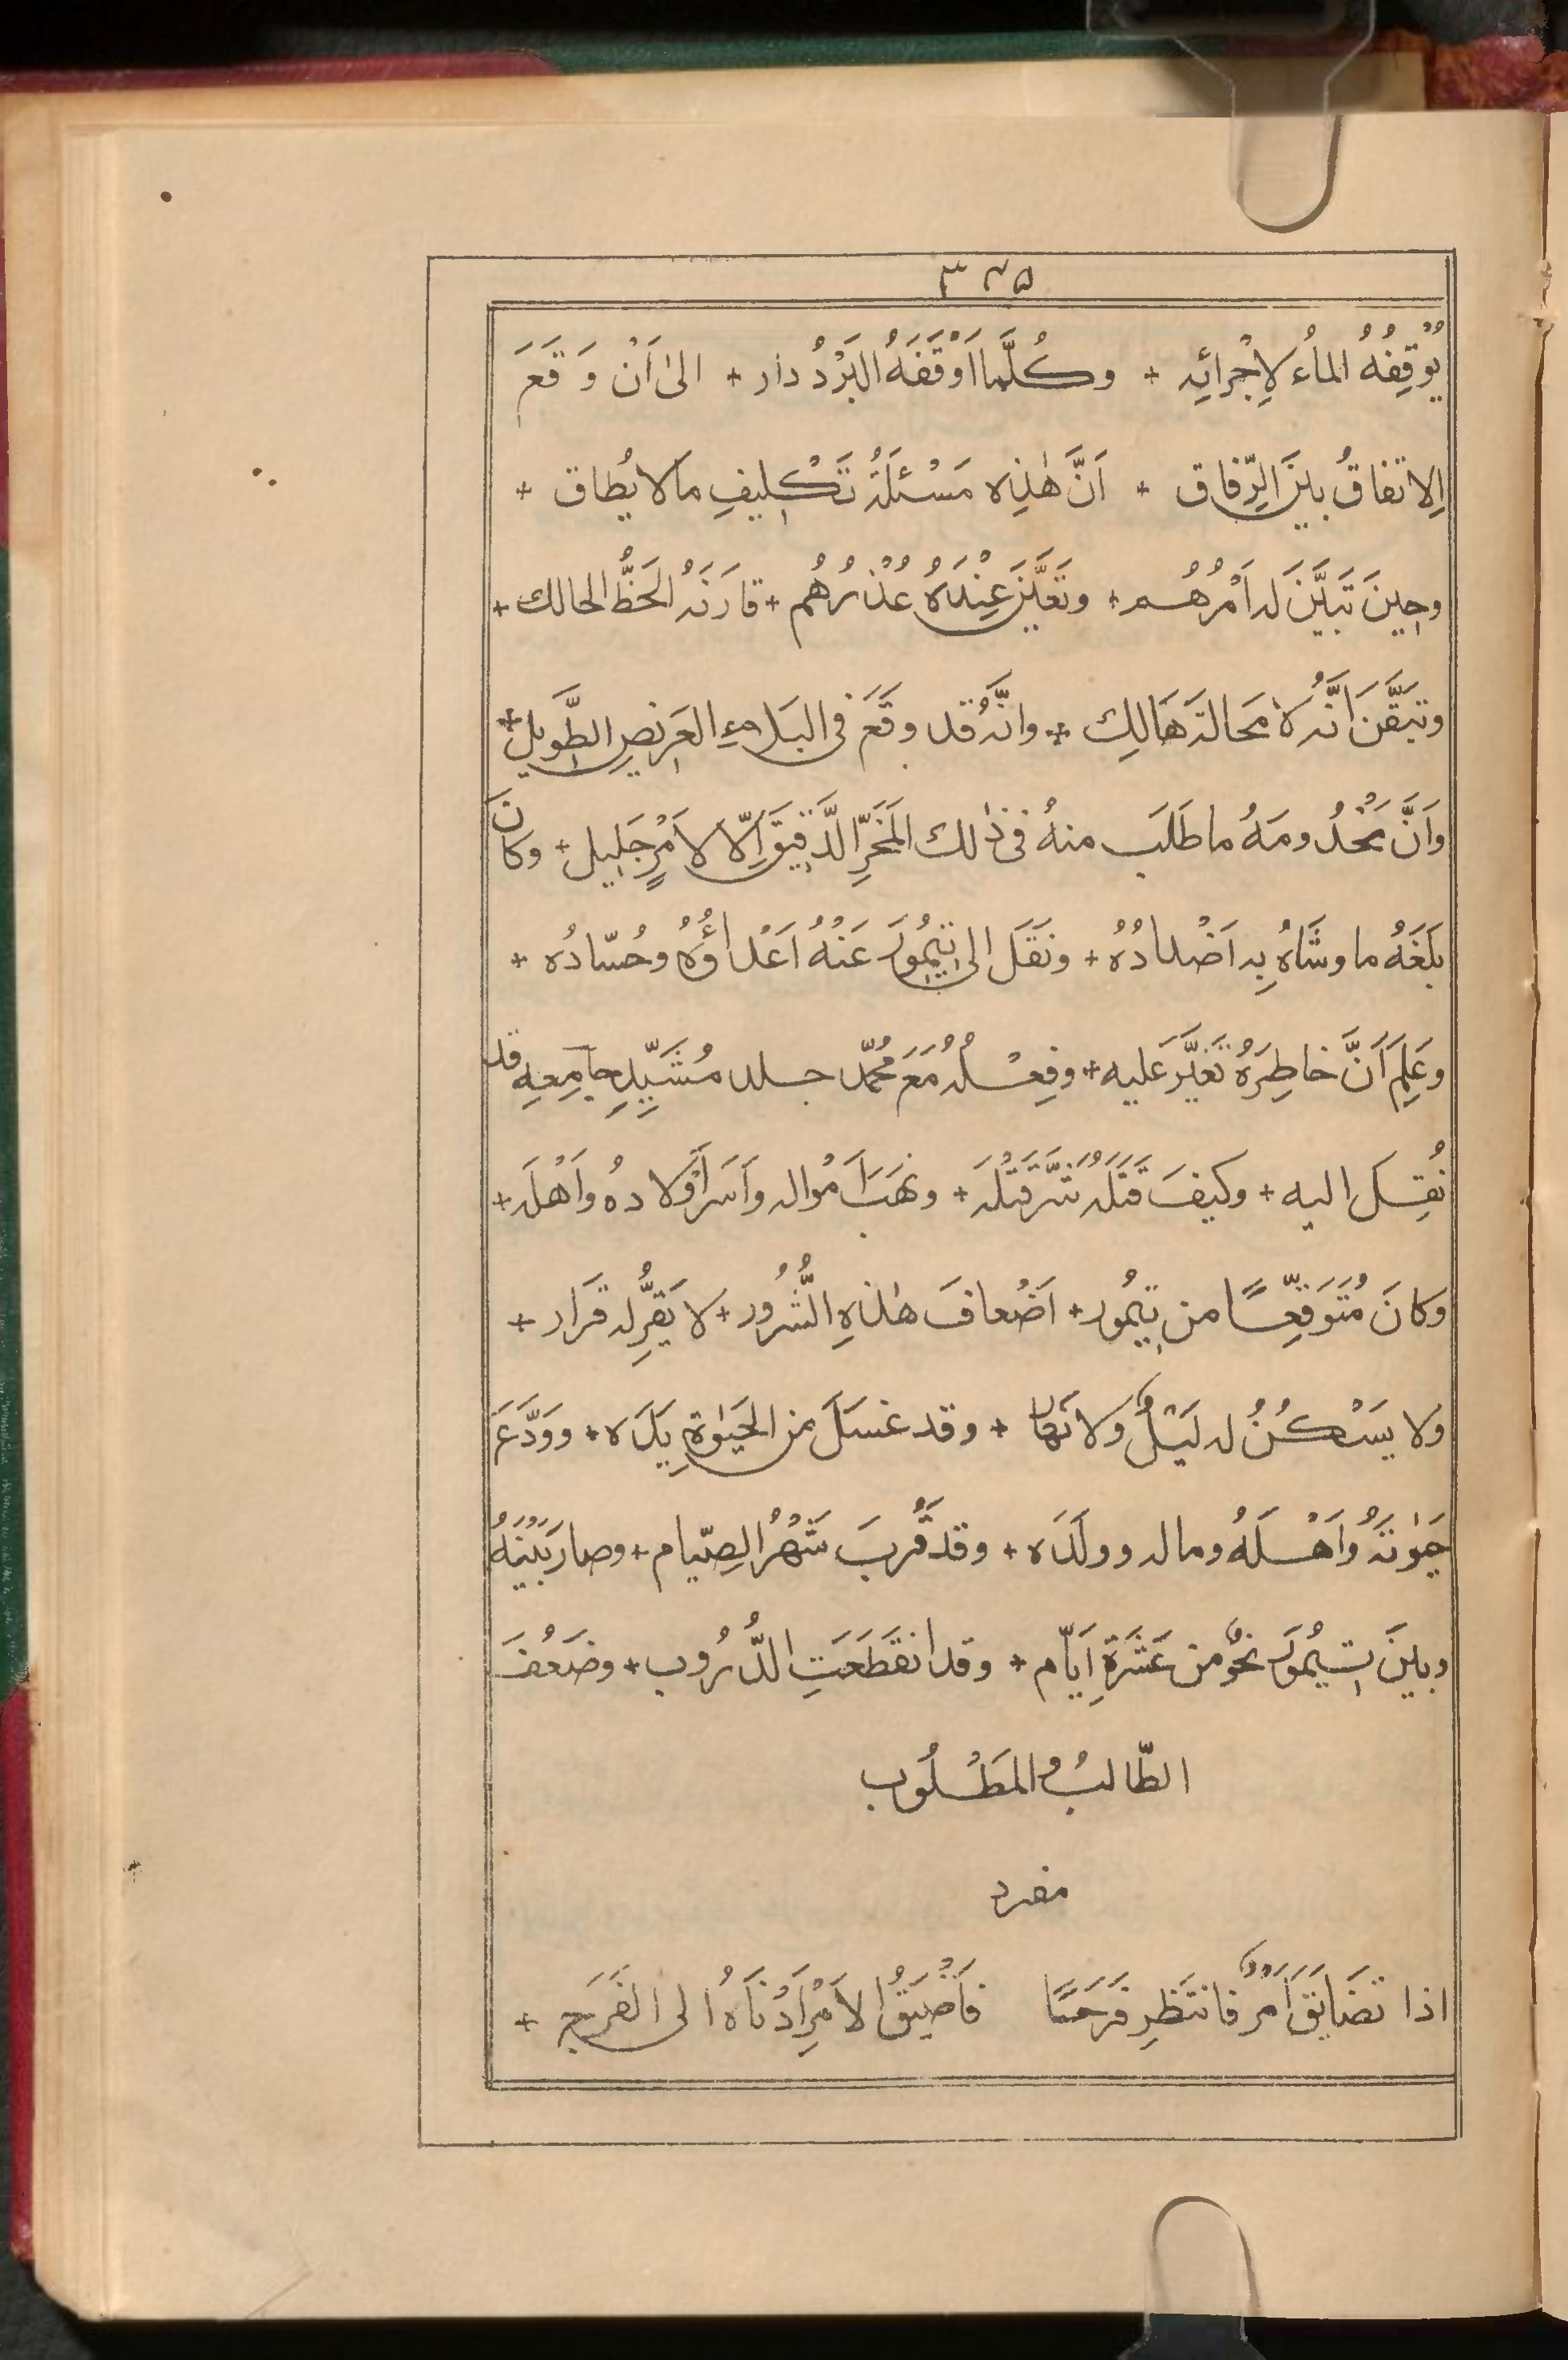 ٣٢٥
يُوْقِفُهُ الماءُ لِاِجْرائِه + وكُلَّما اَوْقَفَهُ البَرْدُ دار + الىٰ اَنْ وَقَعَ
الاتفاقُ بينَ الرِّفاق + اَنَّ هٰذِه مَسْئلَةُ تَكْليفِ مالا يُطاق +
وحينَ تَبَيَّنَ له اَمْرُهُم + وتَعَيَّنَ عِنْدَهُ عُذْرُهُم + قارَنَهُ الحَظُّ الحالك +
وتيَقَّنَ اَنَّه لا مَحالةَ هَالِك + وانَّه قد وقَعَ فى البَلاءِ العَرِيضِ الطَّوِيلِ +
وَاَنَّ مَخْدُومَهُ ما طَلَبَ منهُ فى ذٰلك المَخَرِّ الدَّقِيقَ اِلّا لاَمْرٍ جَلِيل + وكانَ
بَلَغَهُ ما وشَّاهُ بِه اَضْدادُهُ + ونَقَلَ الى تِيمُورَ عَنْهُ اَعْداؤُهُ وحُسّادُه +
وعَلِمَ اَنَّ خاطِرَهُ تَغَيَّرَ عَليه + وفِعْلُهُ مَعَ مُحَمّد جلد مُشَيِّدِ جامِعِهِ قد
نُقِلَ اليه + وكيفَ قَتَلَهُ شَرَّ قَتْلَه + ونَهَبَ اَمْواله وَاَسَرَ اَوْلادهُ واَهْلَه +
وَكانَ مُتَوَقِّعًا من تِيمُور + اَضْعافَ هٰذِهِ الشُّرُور + لا يَقِرُّ له قَرَار +
وَلا يَسْكُنُ له لَيْلٌ وَلا نَهار + وقد غسَلَ من الحَيٰوةِ يَدَه + ووَدَّعَ
حَيٰوتَهُ وَاَهْلَهُ وماله وولَدَه + وقد قَرُبَ شَهْرُ الصِّيام + وصارَ بَيْنَهُ
وبينَ تيمُورَ نحوٌ من عَشَرَةِ اَيّام + وقد انقَطَعَتِ الدُّرُوب + وضَعُفَ
الطّالبُ والمَطْلُوب
مفرد
اذا تضَايَقَ اَمْرٌ فانتَظِرِ فَرَحًا فاَضْيَقُ الاَمْرِ اَدْناهُ الى الفَرَجِ +